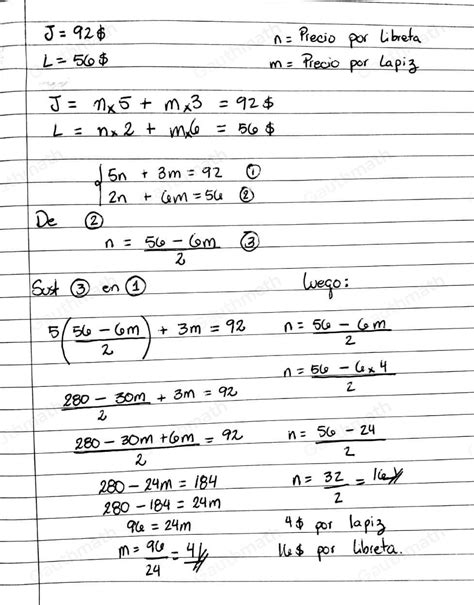 J = 92$
L = 56$
n = Precio por Libreta
m = Precio por Lapiz
J = n x 5 + m x 3 = 92 $
L = n x 2 + m x 6 = 56 $
5n + 3m = 92 ①
2n + 6m = 56 ②
De ②
n = (56 - 6m)/2 ③
Sust ③ en ①
5((56 - 6m)/2) + 3m = 92
(280 - 30m)/2 + 3m = 92
(280 - 30m + 6m)/2 = 92
280 - 24m = 184
280 - 184 = 24m
96 = 24m
m = 96/24 = 4//
Luego:
n = (56 - 6m)/2
n = (56 - 6 x 4)/2
n = (56 - 24)/2
n = 32/2 = 16//
4$ por lapiz
16$ por libreta.